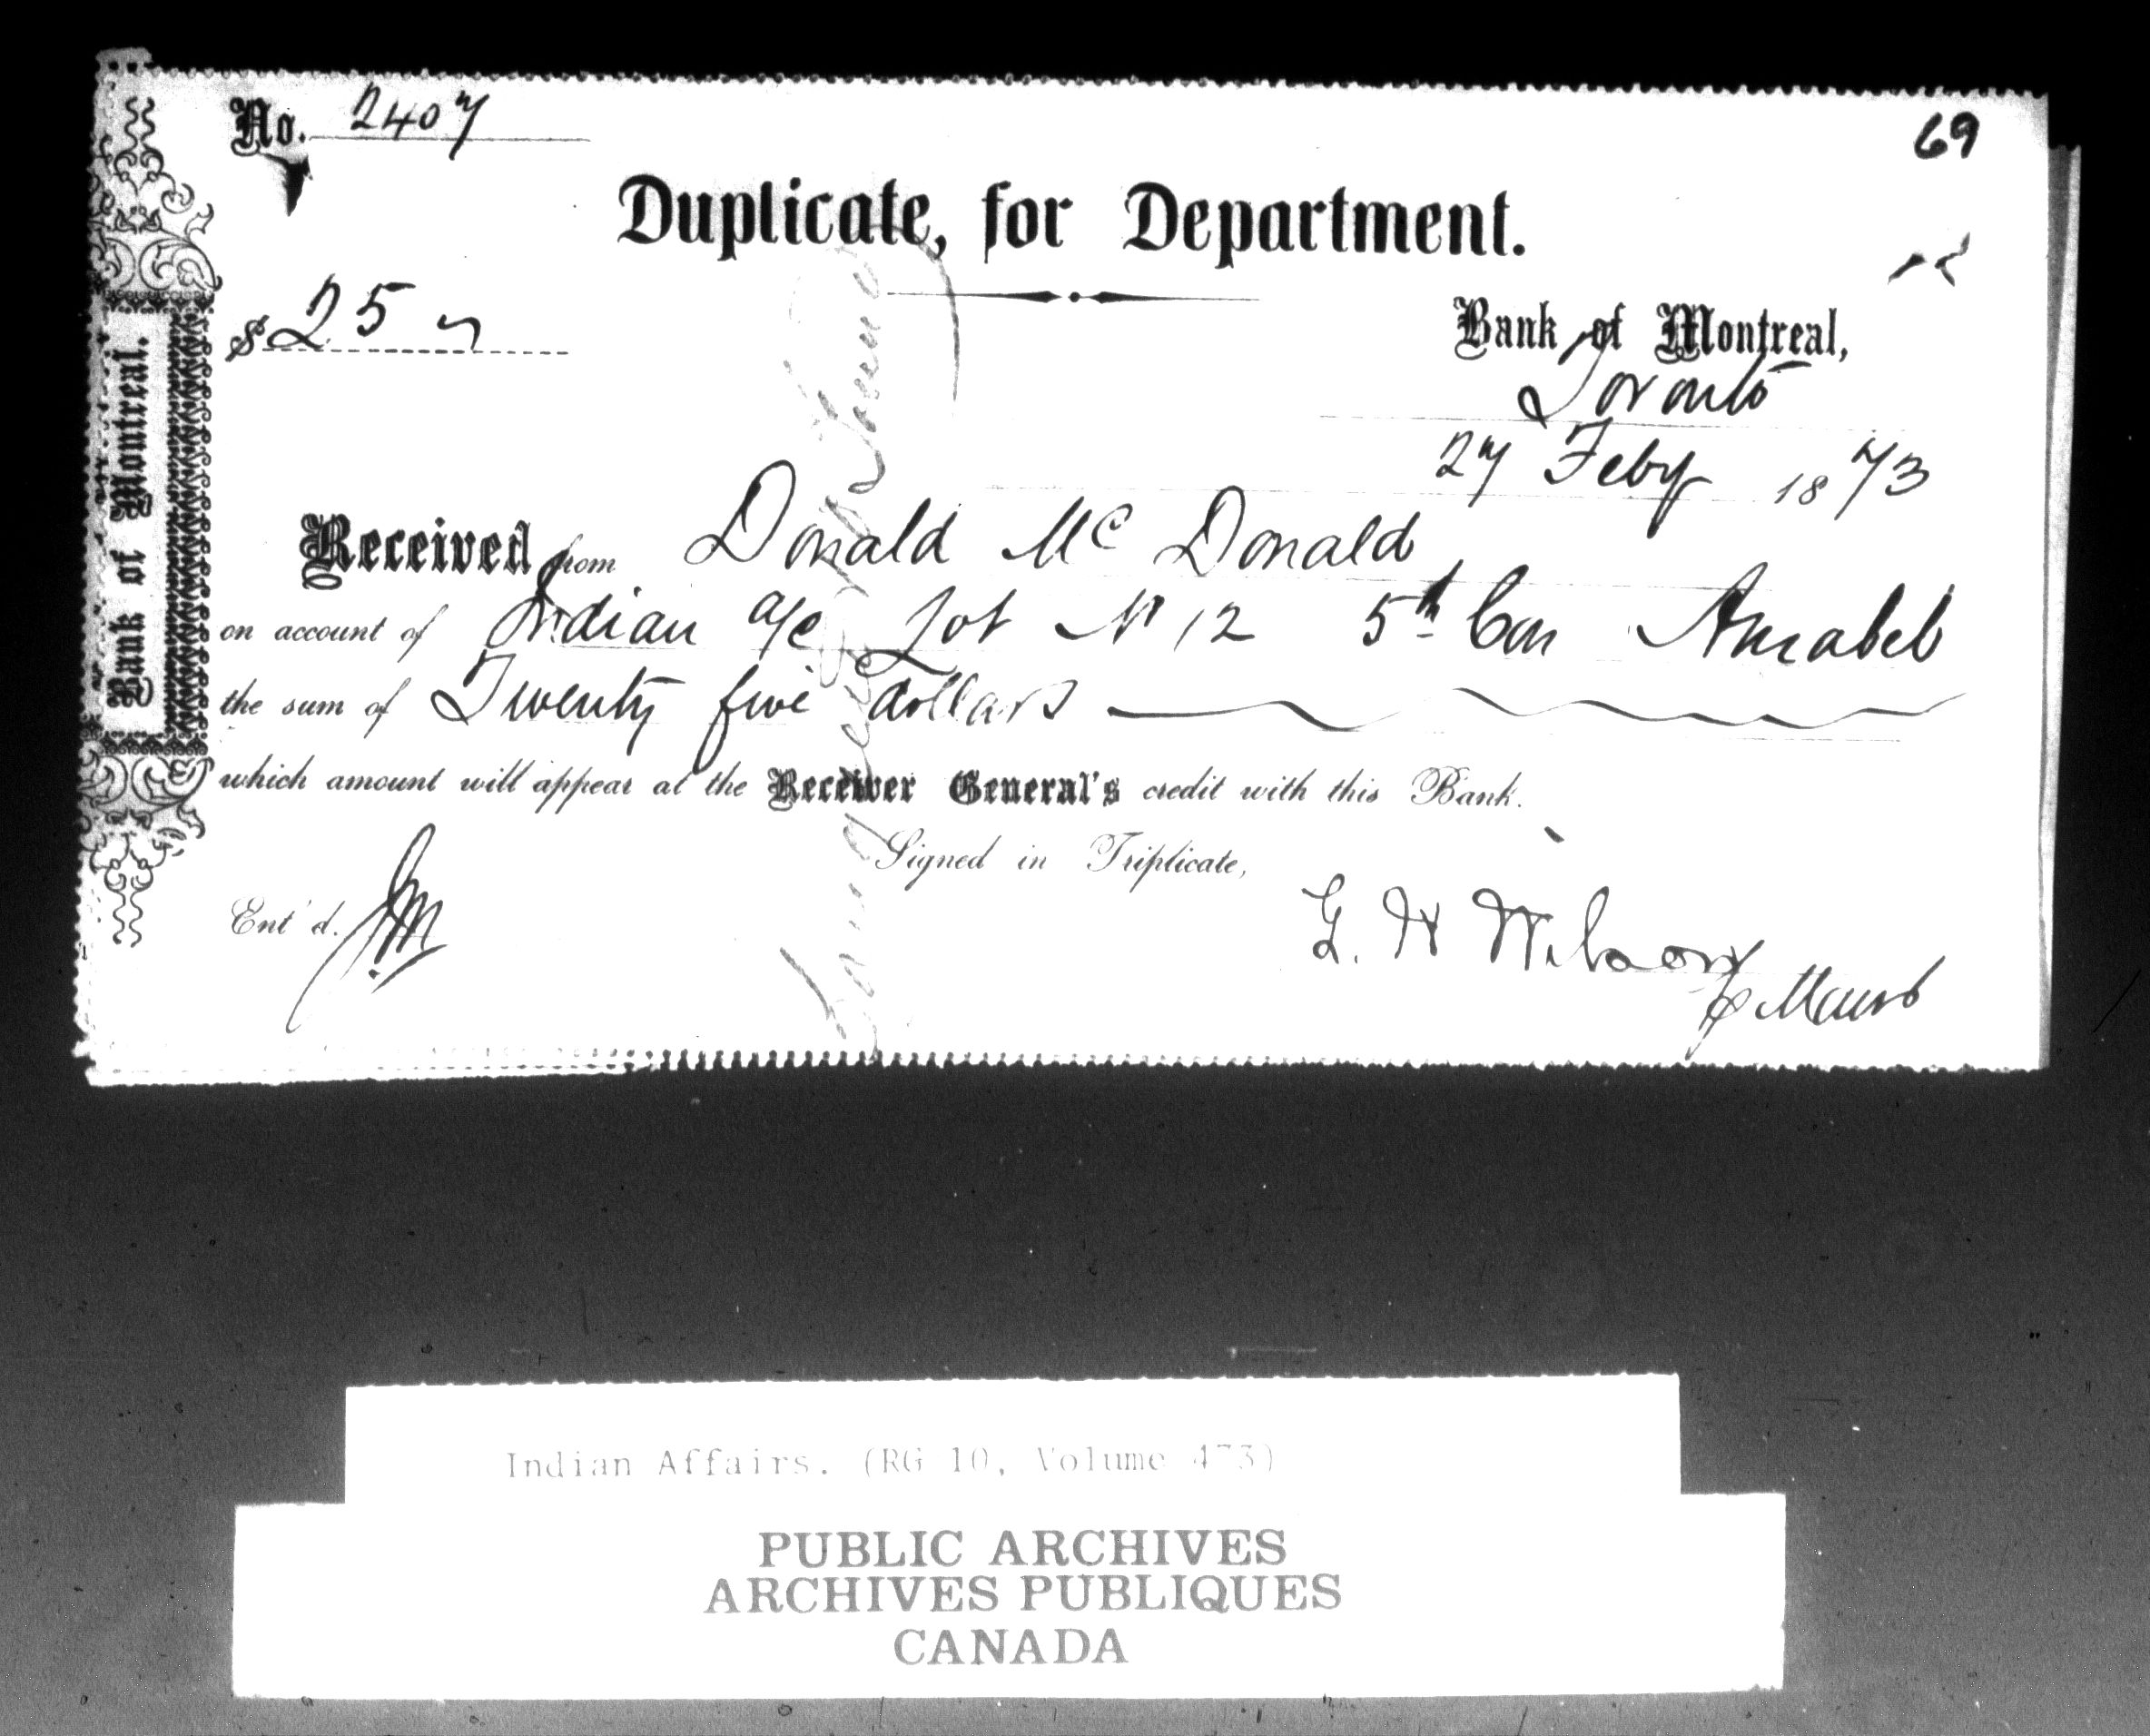 No. 2407
69
Duplicate, for Department.
$ 25
Bank of Montreal,
Toronto
27 Feby 1873
Received from Donald Mc Donald
on account of Indian a/c Lot No 12 5th Con Amabel
the sum of Twenty five dollars
which amount will appear at the Receiver General's credit with this Bank.
Signed in Triplicate,
Ent'd. JM
G. H Wilson
p Manr
Bank of Montreal.
Sound
Indian Affairs. (RG 10, Volume 473)
PUBLIC ARCHIVES
ARCHIVES PUBLIQUES
CANADA